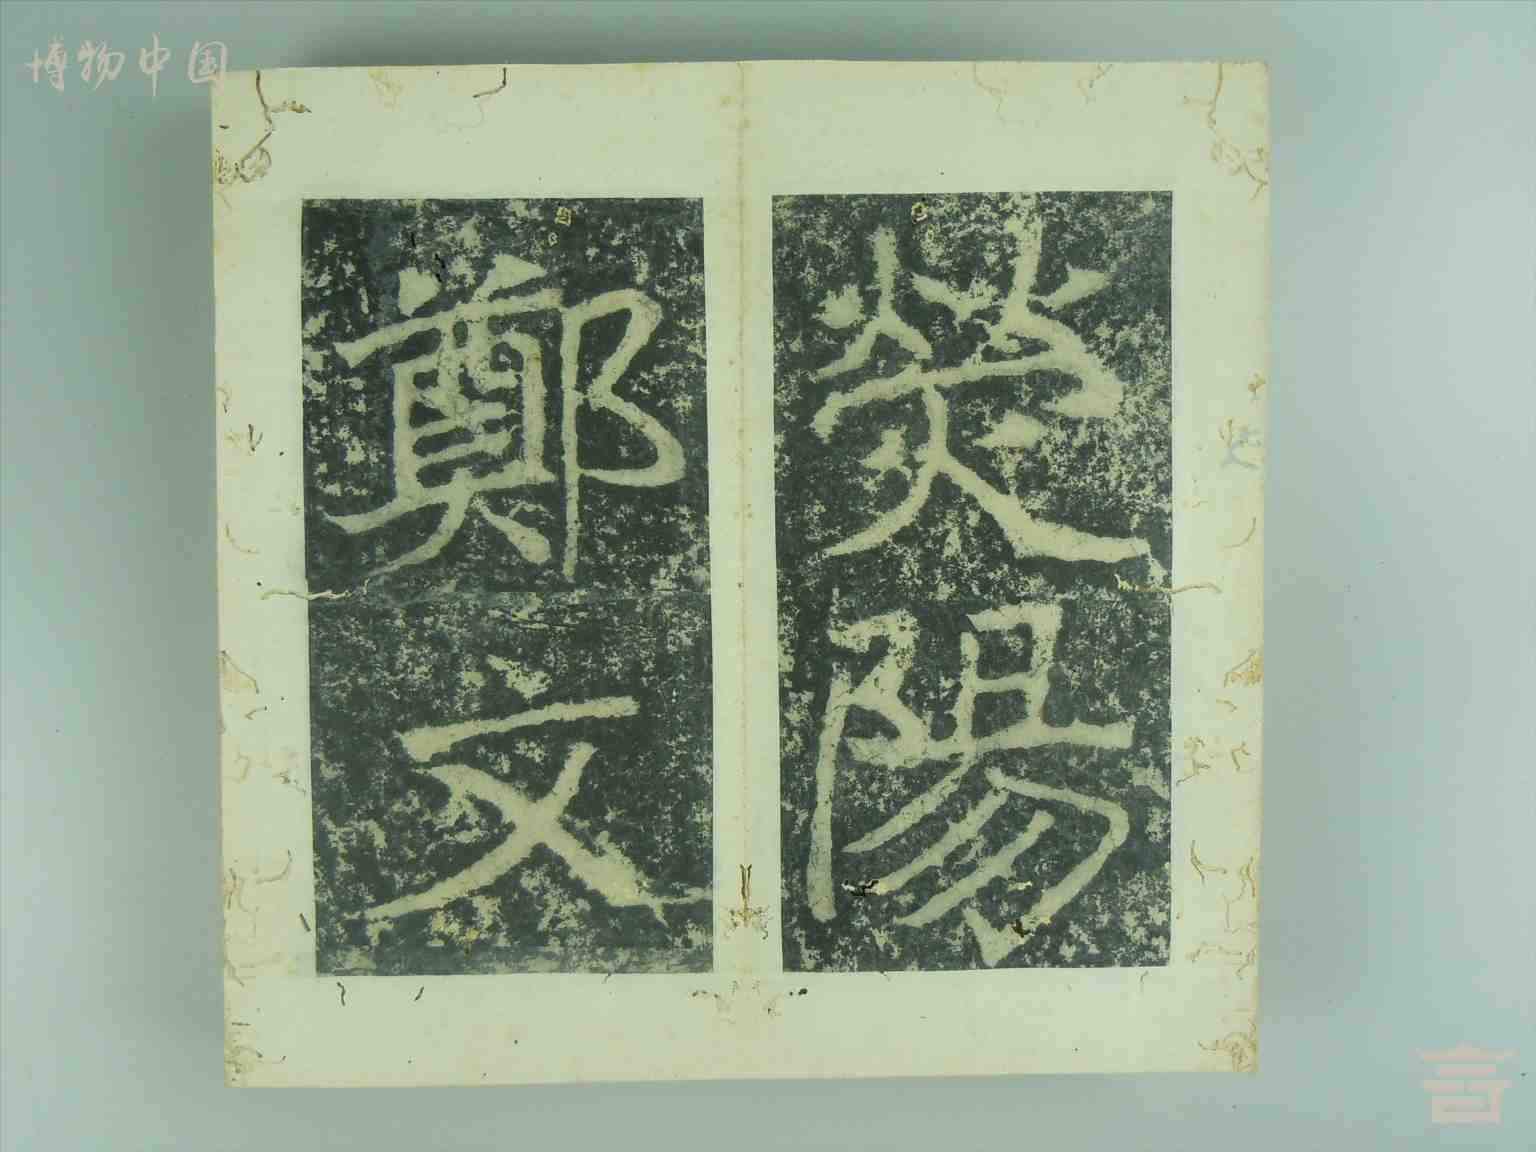 博物中国
熒陽
鄭文